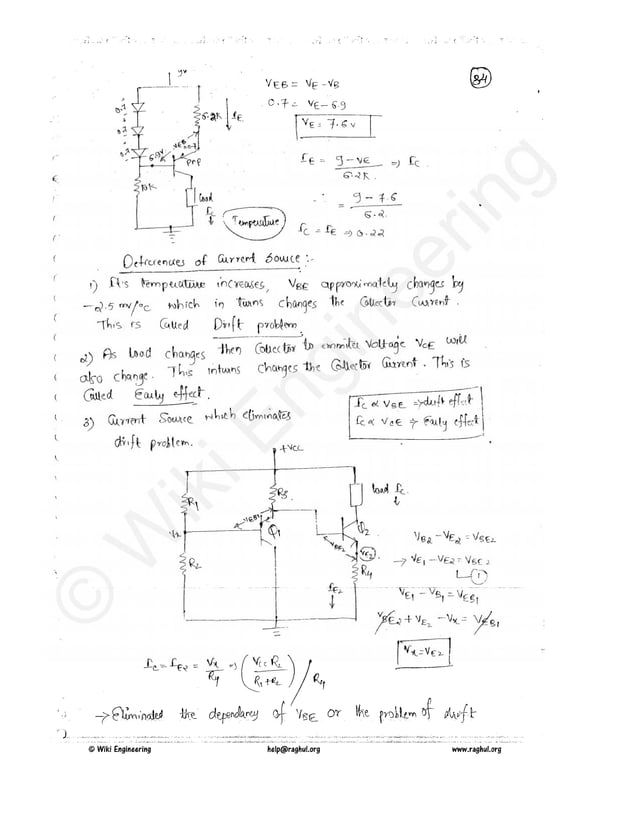 34
9v
0.7
0.7
0.7
6.2K
IE
6.9V
VEB
0.7
pnp
10K
load
Ic
Temperature
VEB = VE - VB
0.7 = VE - 6.9
VE = 7.6 v
IE = 9 - VE / 6.2K. => Ic
∴ = 9 - 7.6 / 6.2
Ic = IE => 0.22
Deferences of Current Source :-
1) If's temperature increases, VBE approximately changes by
-2.5 mv/°c which in turns changes the Collector Current.
This is Called Drift problem
2) As load changes then Collector to emmiter Voltage VCE will
also change. This inturns changes the Collector Current. This is
Called Early effect.
Ic ∝ VBE => drift effect
Ic ∝ VCE => Early effect
3) Current Source which eliminates
drift problem.
+VCC
R1
R3
load Ic
VEB1
Vx
Q1
Q2
VBE2
VE2
R2
R4
IE2
VB2 - VE2 = VBE2
→ VE1 - VE2 = VBE2
1
VE1 - VB1 = VEB1
VBE2 + VE2 - Vx = VEB1
Vx = VE2
Ic = IE2 = Vx / R4 => (Vcc R2 / R1 + R2) / R4
→ Eliminated the dependancy of VBE or the problem of drift
© Wiki Engineering
© Wiki Engineering help@raghul.org www.raghul.org